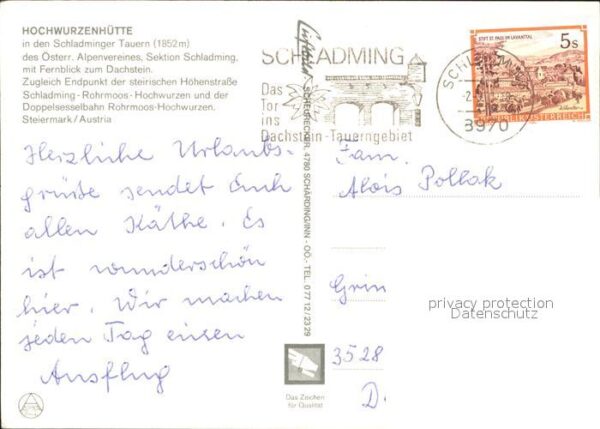 HOCHWURZENHÜTTE
in den Schladminger Tauern (1852m)
des Österr. Alpenvereines, Sektion Schladming,
mit Fernblick zum Dachstein.
Zugleich Endpunkt der steirischen Höhenstraße
Schladming - Rohrmoos - Hochwurzen und der
Doppelsesselbahn Rohrmoos-Hochwurzen.
Steiermark / Austria
Herzliche Urlaubs-
grüße sendet Euch
allen Käthe. Es
ist wunderschön
hier. Wir machen
jeden Tag einen
Ausflug
SCHLADMING
Das
Tor
ins
Dachstein-Tauerngebiet
SCHLADMING
8970
STIFT ST. PAUL IM LAVANTTAL
5s
REPUBLIK ÖSTERREICH
4780 SCHÄRDING/INN - OÖ.- TEL. 077 12/2329
Fam.
Alois Pollak
3528
D.
privacy protection
Datenschutz
Das Zeichen
für Qualität